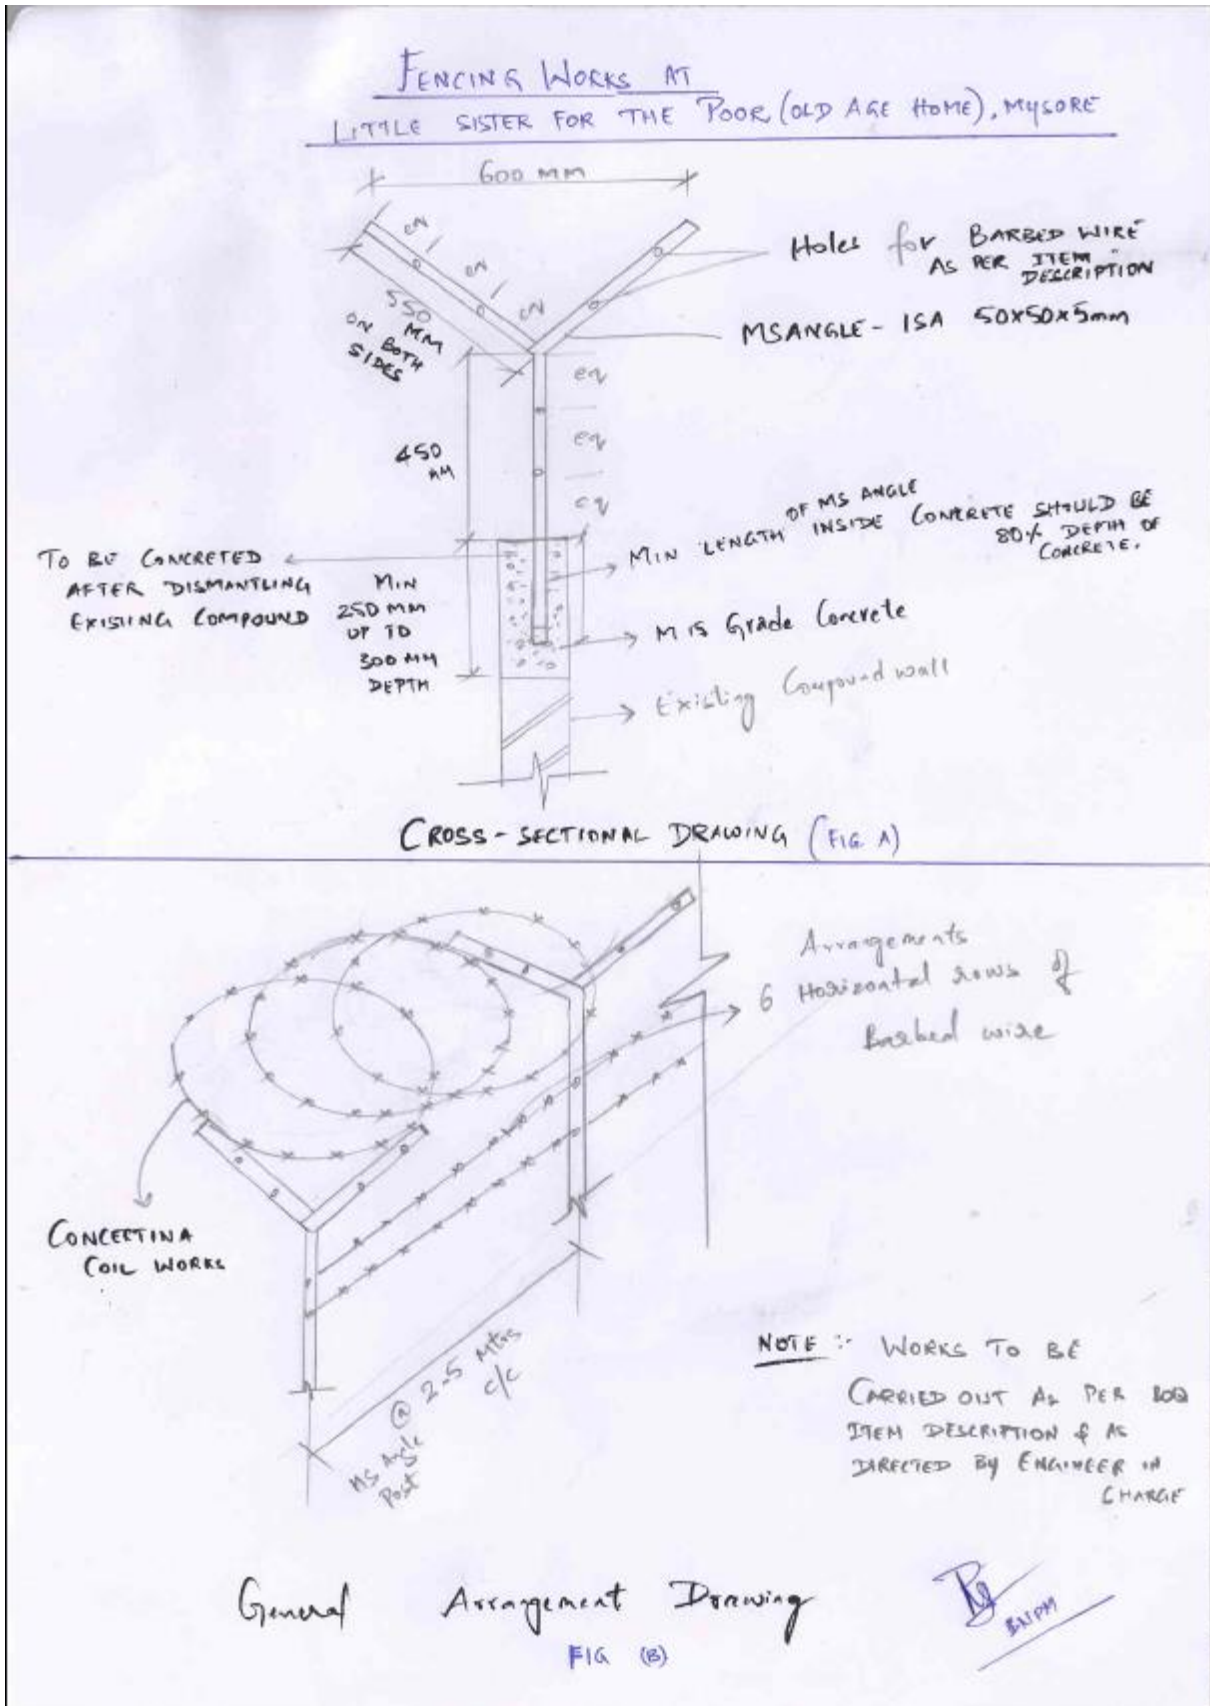 FENCING WORKS AT
LITTLE SISTER FOR THE POOR (OLD AGE HOME), MYSORE
600 MM
eq
eq
eq
550 MM
ON BOTH
SIDES
Holes for BARBED WIRE
AS PER ITEM
DESCRIPTION
MS ANGLE - ISA 50x50x5mm
eq
eq
eq
450
MM
TO BE CONCRETED
AFTER DISMANTLING
EXISTING COMPOUND
MIN
250 MM
UP TO
300 MM
DEPTH
MIN LENGTH OF MS ANGLE INSIDE CONCRETE SHOULD BE
80% DEPTH OF
CONCRETE.
M 15 Grade Concrete
Existing Compound wall
CROSS-SECTIONAL DRAWING (FIG A)
Arrangements
6 Horizontal rows of
Barbed wire
CONCERTINA
COIL WORKS
MS Angle
Post
@ 2.5 Mtrs
c/c
NOTE :- WORKS TO BE
CARRIED OUT AS PER BOQ
ITEM DESCRIPTION & AS
DIRECTED BY ENGINEER IN
CHARGE
General Arrangement Drawing
FIG (B)
BNPM